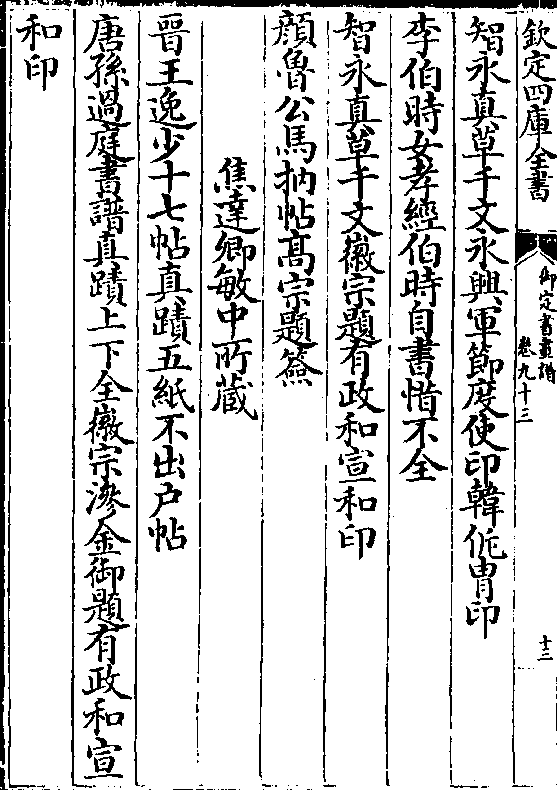 欽定四庫全書
御定書畫譜
卷九十三
十三
智永真草千文永興軍節度使印韓侂冑印
李伯時女孝經伯時自書惜不全
智永真草千文徽宗題有政和宣和印
顔魯公馬病帖髙宗題簽
焦達卿敏中所藏
晉王逸少十七帖真蹟五紙不出户帖
唐孫過庭書譜真蹟上下全徽宗滲金御題有政和宣
和印